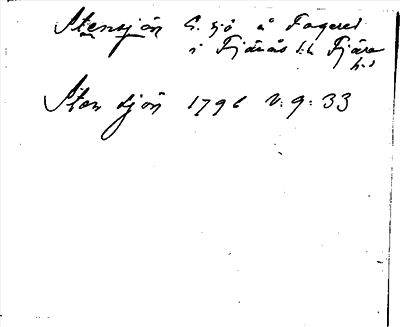 Stensjön G. sjö å Fagered
i Fjärås sk Fjäre
hd
Sten sjön 1796 V: 9: 33